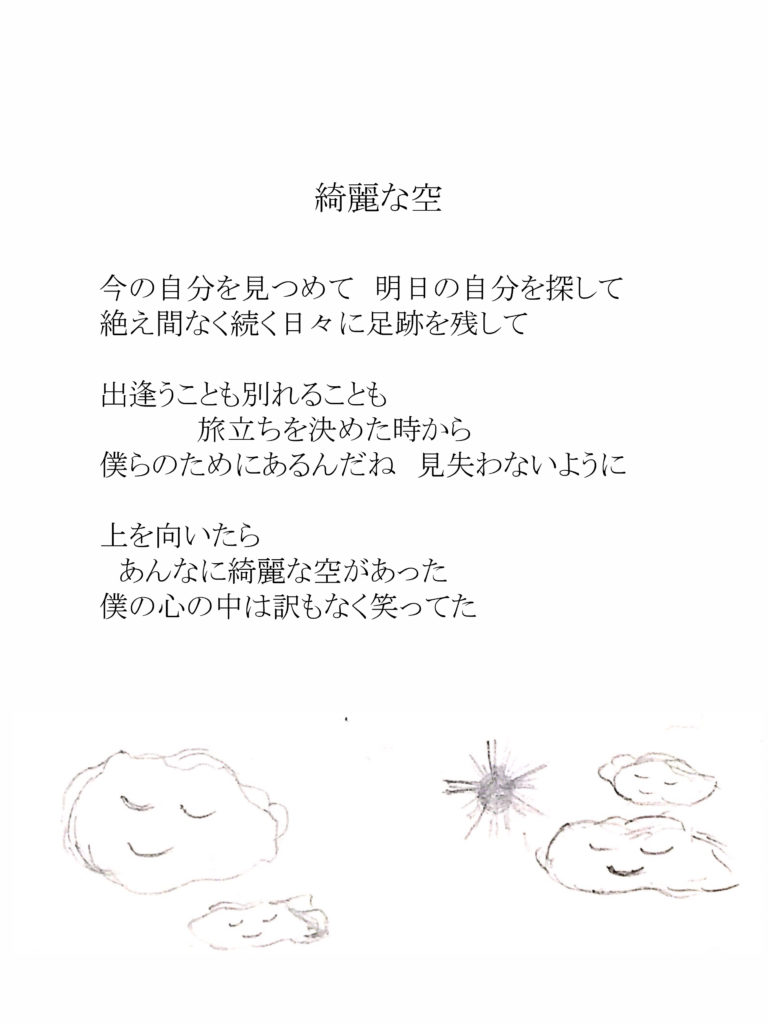 綺麗な空
今の自分を見つめて　明日の自分を探して
絶え間なく続く日々に足跡を残して
出逢うことも別れることも
旅立ちを決めた時から
僕らのためにあるんだね　見失わないように
上を向いたら
あんなに綺麗な空があった
僕の心の中は訳もなく笑ってた